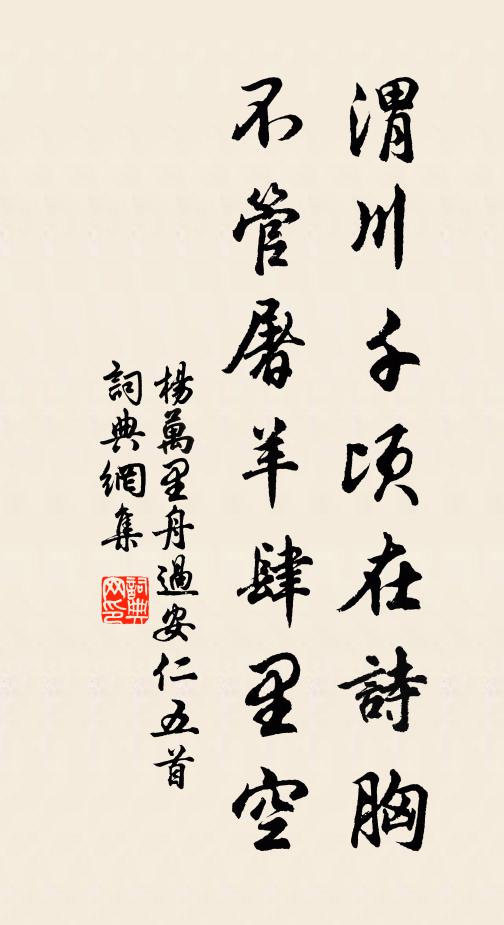 渭川千頃在詩胸
不管屠羊肆里空
楊萬里舟過安仁五首
詞典網集
詞典網印